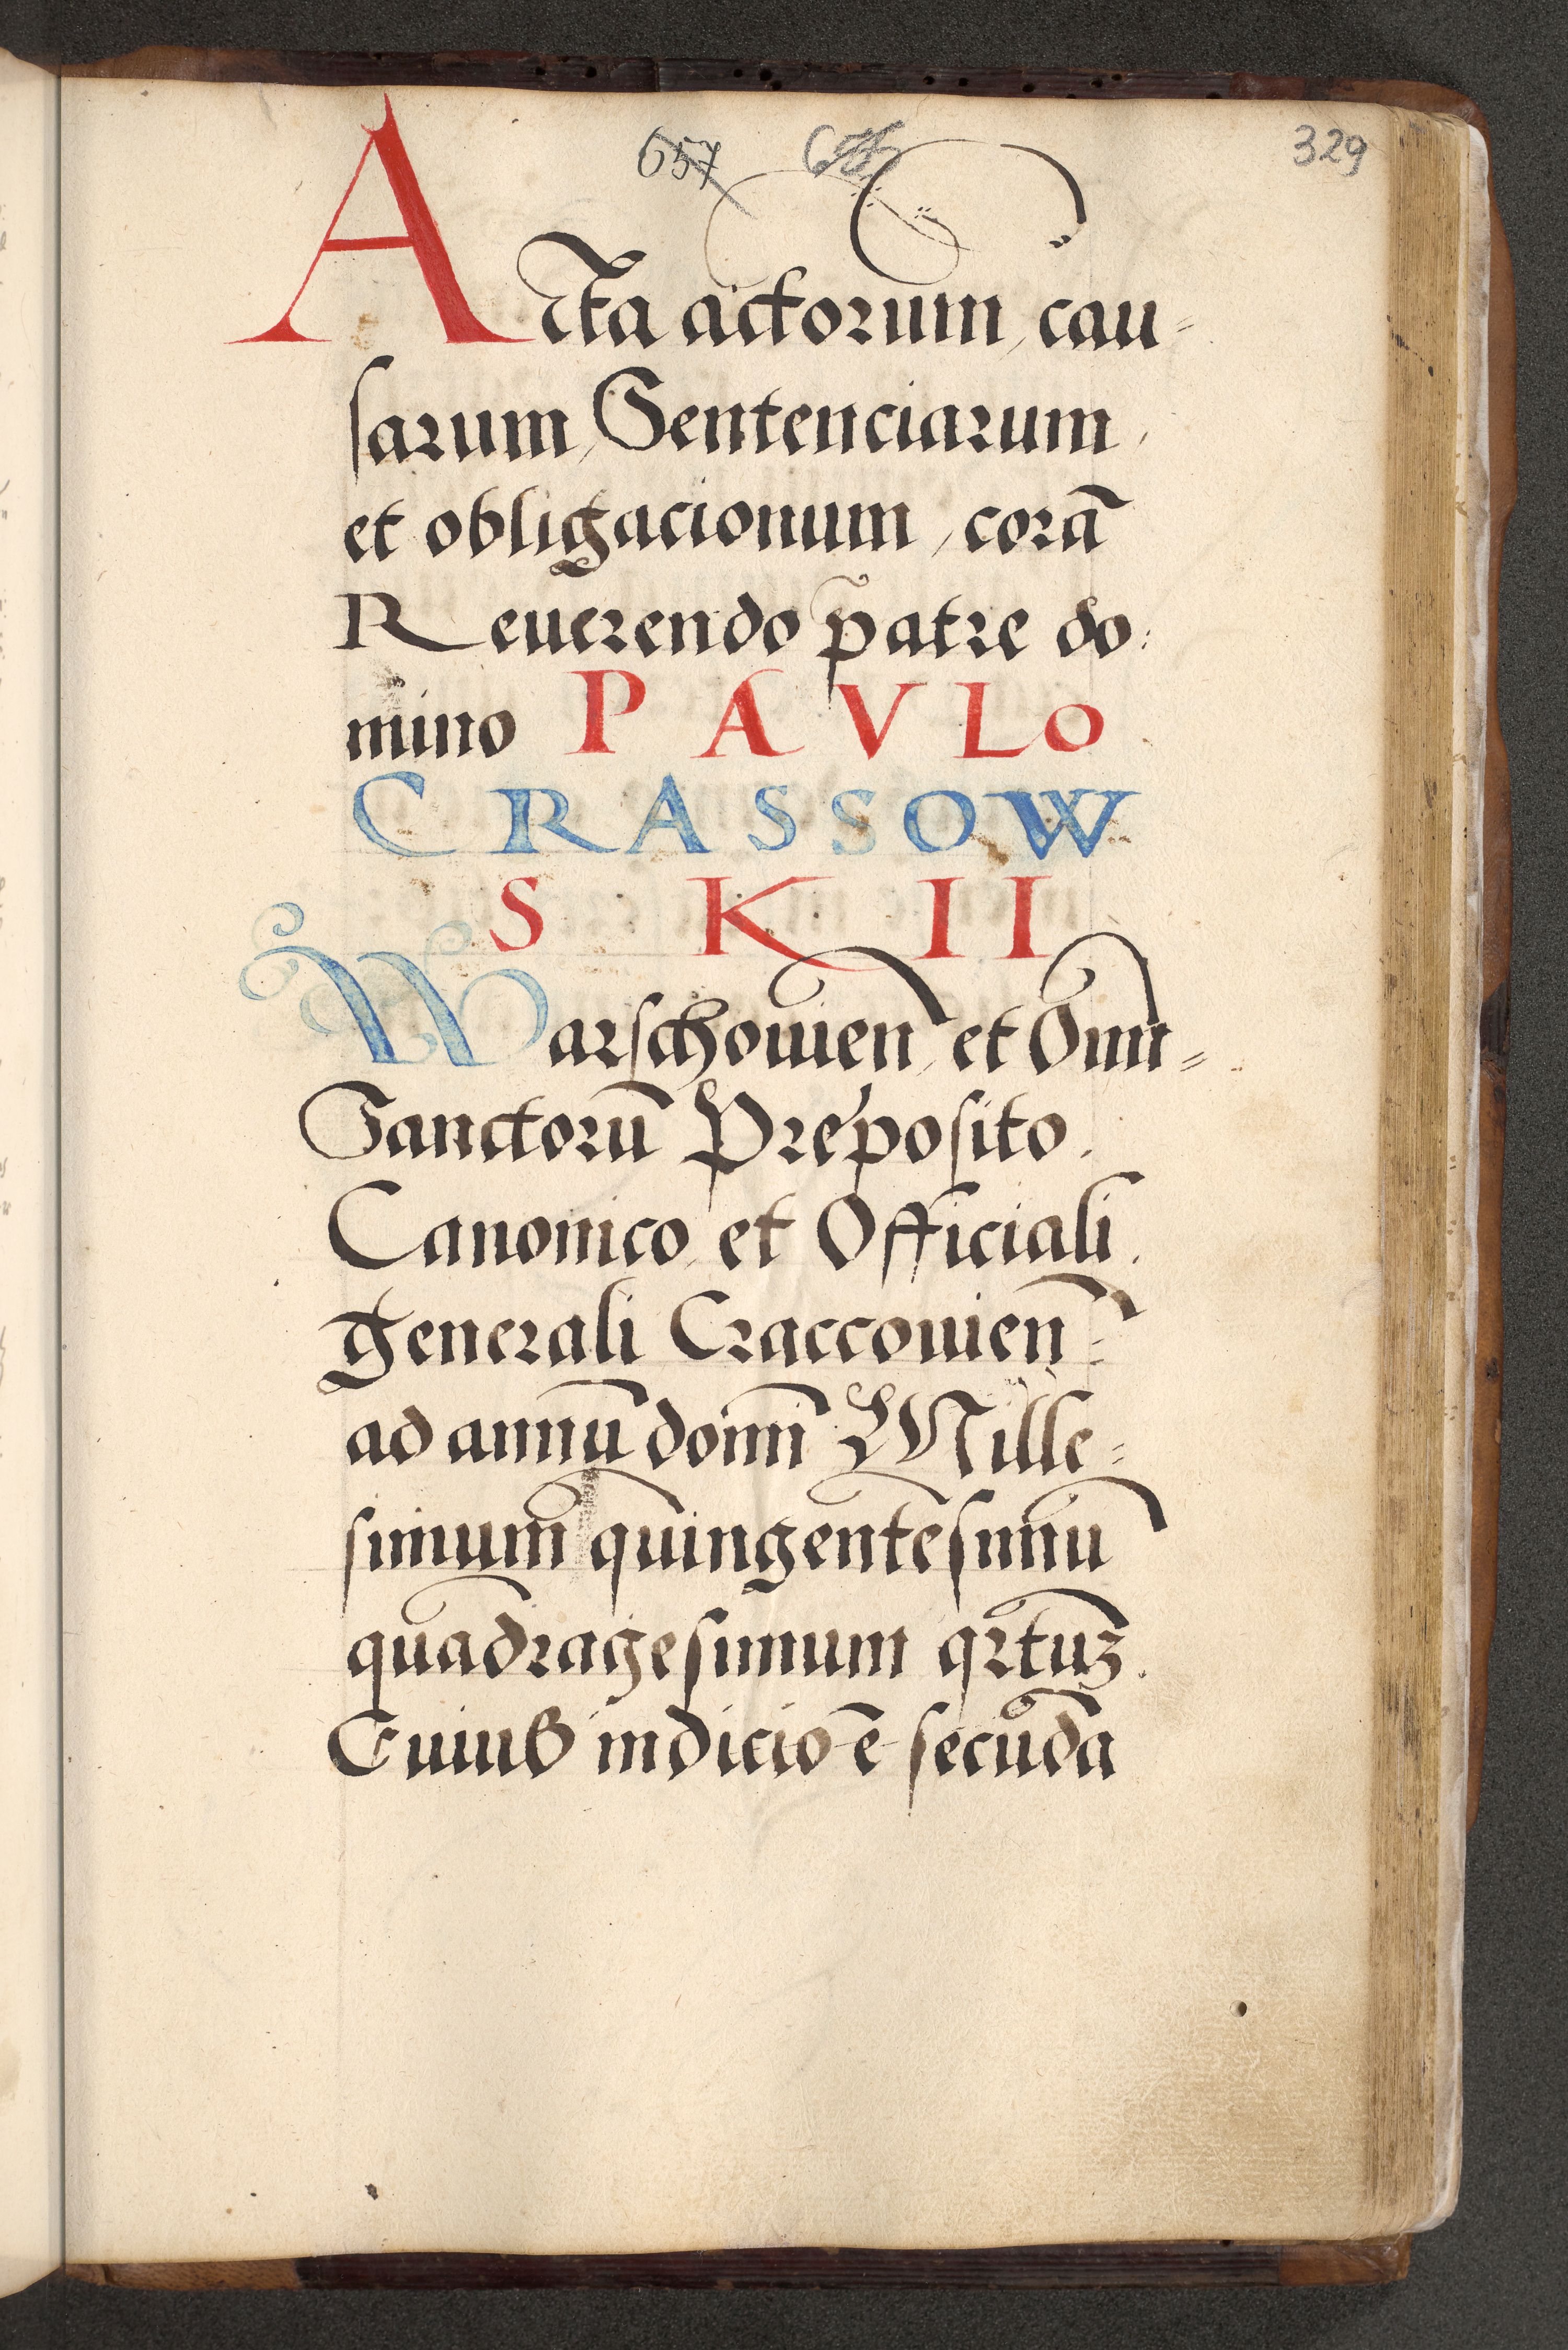 657 329
Acta actorum, cau=
sarum, Sentenciarum,
et obligacionum, corā
Reuerendo p̄atre do:
mino PAVLO
CRASSOW
SKII
Warschouien̄ et Om̄i=
Sanctorū Preposito.
Canonico, et Officiali.
generali Craccouien̄:
ad annū domī Mille=
simum̄ quingentesimū
quadragesimum qrtuꝫ.
Cuius indicio ē secūda